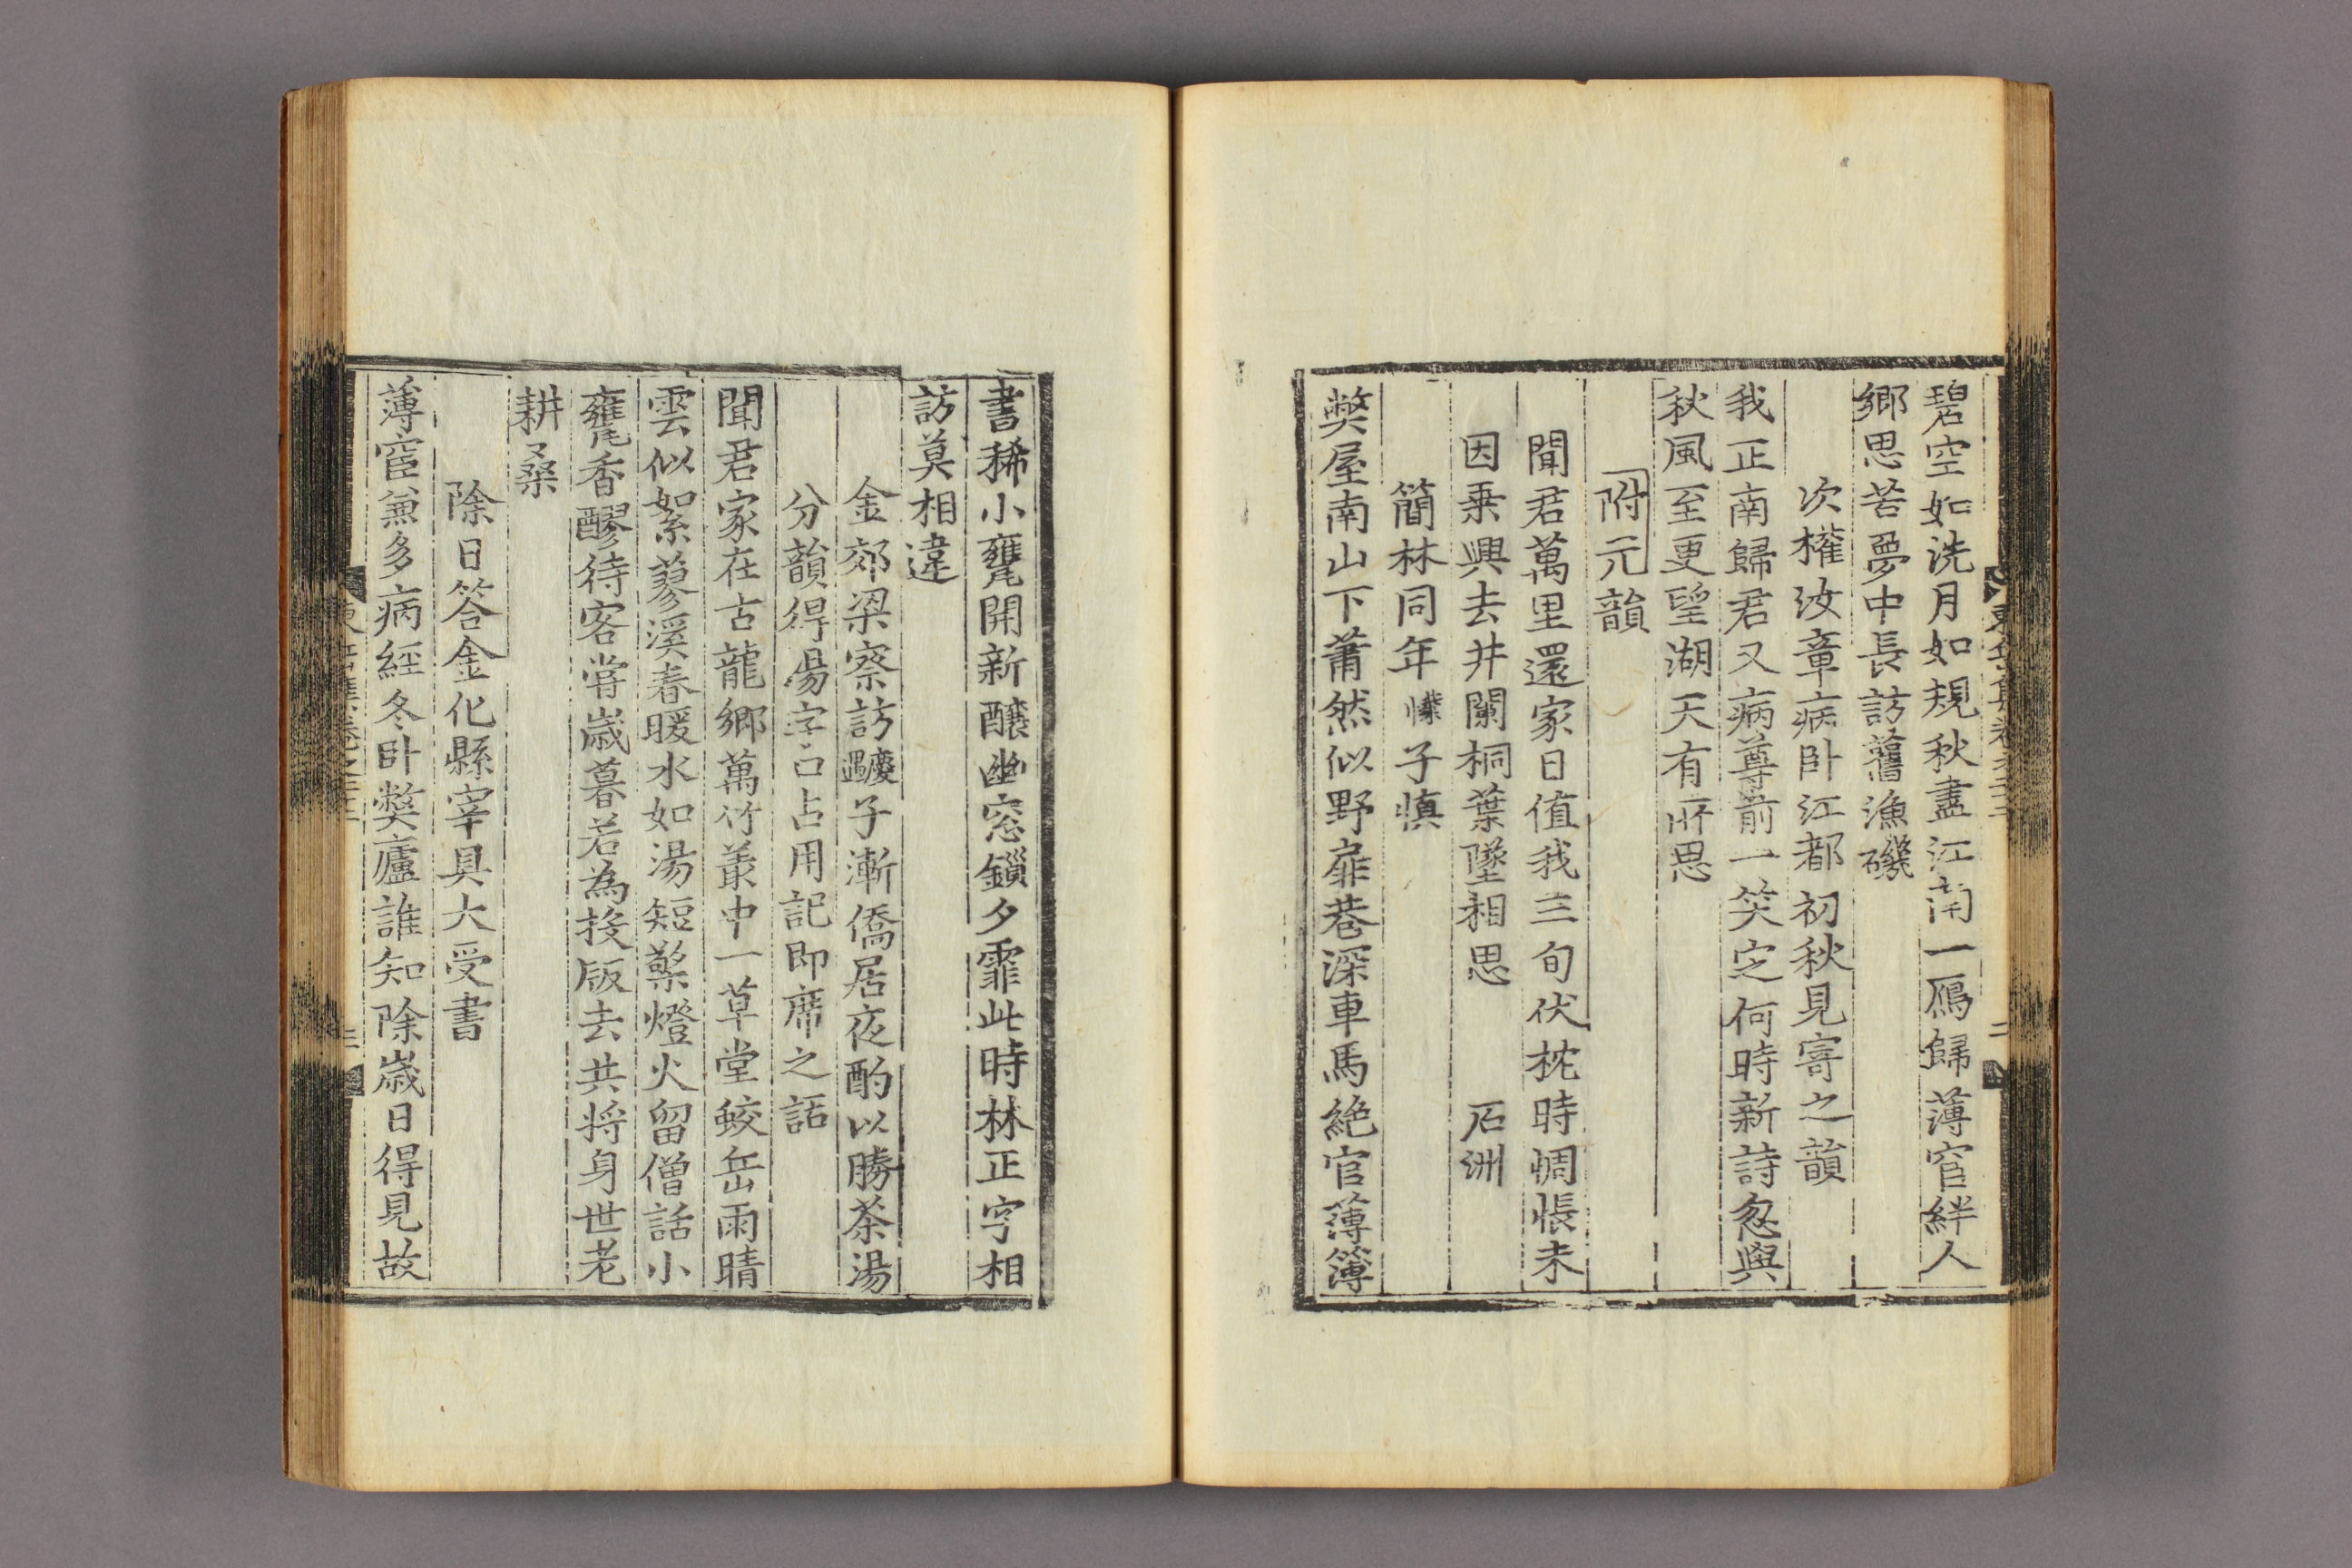 碧空如洗月如規秋盡江南一鴈歸薄宦絆人
鄕思苦夢中長訪舊漁磯
次權汝章病卧江都初秋見寄之韻
我正南歸君又病尊前一笑定何時新詩忽與
秋風至更望湖天有所思
附元韻
聞君萬里還家日値我三旬伏枕時惆悵未
因乗興去井闌桐葉墜相思 石洲
簡林同年㦿子愼
獘屋南山下蕭然似野扉巷深車馬絶官薄簿
書稀小甕開新釀幽窓鎻夕霏此時林正字相
訪莫相違
金郊梁察訪慶遇子漸僑居夜酌以勝茶湯
分韻得湯字口占用記即席之話
聞君家在古龍鄕萬竹叢中一草堂鮫岳雨晴
雲似絮蓼溪春暖水如湯短檠燈火留僧話小
甕香醪待客甞歳暮若為投版去共將身世老
耕桑
除日答金化縣宰具大受書
薄宦兼多病經冬卧獘廬誰知除歳日得見故